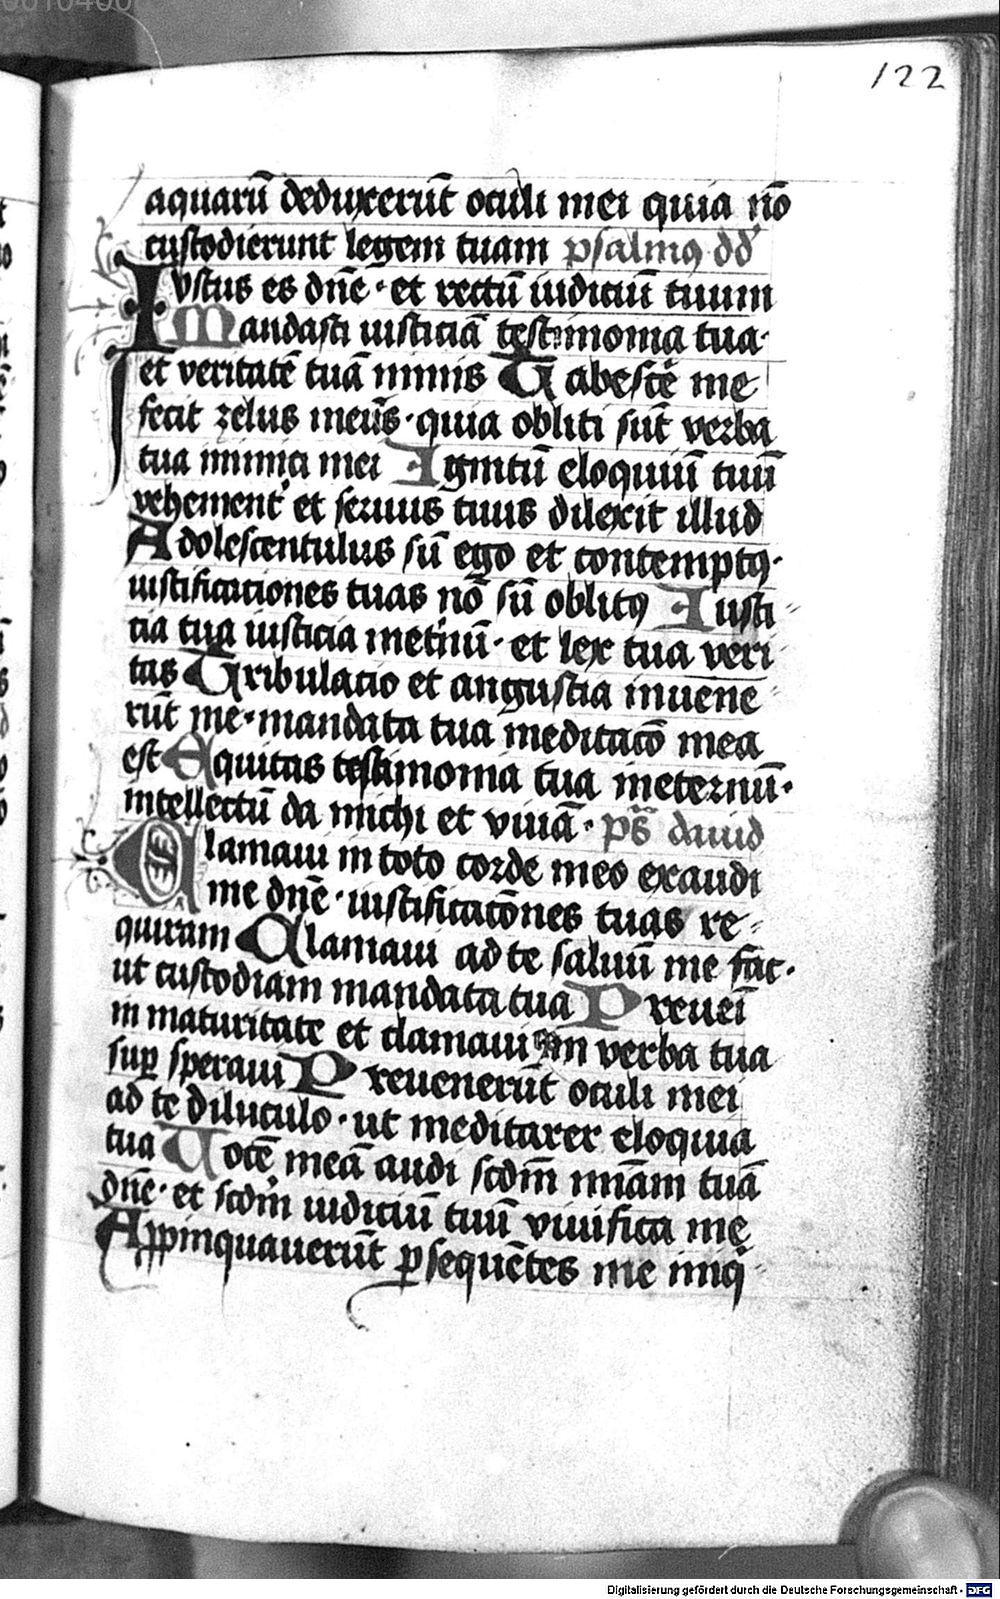 122
aquarū deduxerūt oculi mei quia nō
custodierunt legem tuam psalmꝰ dd
Iustus es dn̄e · et rectū iudiciū tuum
Mandasti iusticiā testimonia tua ·
et veritatē tuā nimis Tabescē me
fecit zelus meus · quia obliti sūt verba
tua inimici mei Ignitū eloquiū tuū
vehement᷑ et seruus tuus dilexit illud
Adolescentulus sū ego et contemptꝰ ·
iustificaciones tuas nō sū oblitꝰ Iusti
cia tua iusticia ineternū · et lex tua veri
tas Tribulacio et angustia inuene
rūt me · mandata tua meditacō mea
est Equitas testimonia tua ineternū ·
intellectū da michi et viuā · ps̄ dauid
Clamaui in toto corde meo exaudi
me dn̄e · iustificacōnes tuas re
quiram Clamaui ad te saluū me fac ·
ut custodiam mandata tua Preueī
in maturitate et clamaui in verba tua
suꝑ speraui Preuenerūt oculi mei
ad te diluculo · ut meditarer eloquia
tua Uocē meā audi scdm̄ mīam tuā
dn̄e · et scdm̄ iudiciū tuū viuifica me
Appinquauerūt ꝑsequētes me iniqͥ
Digitalisierung gefördert durch die Deutsche Forschungsgemeinschaft - DFG